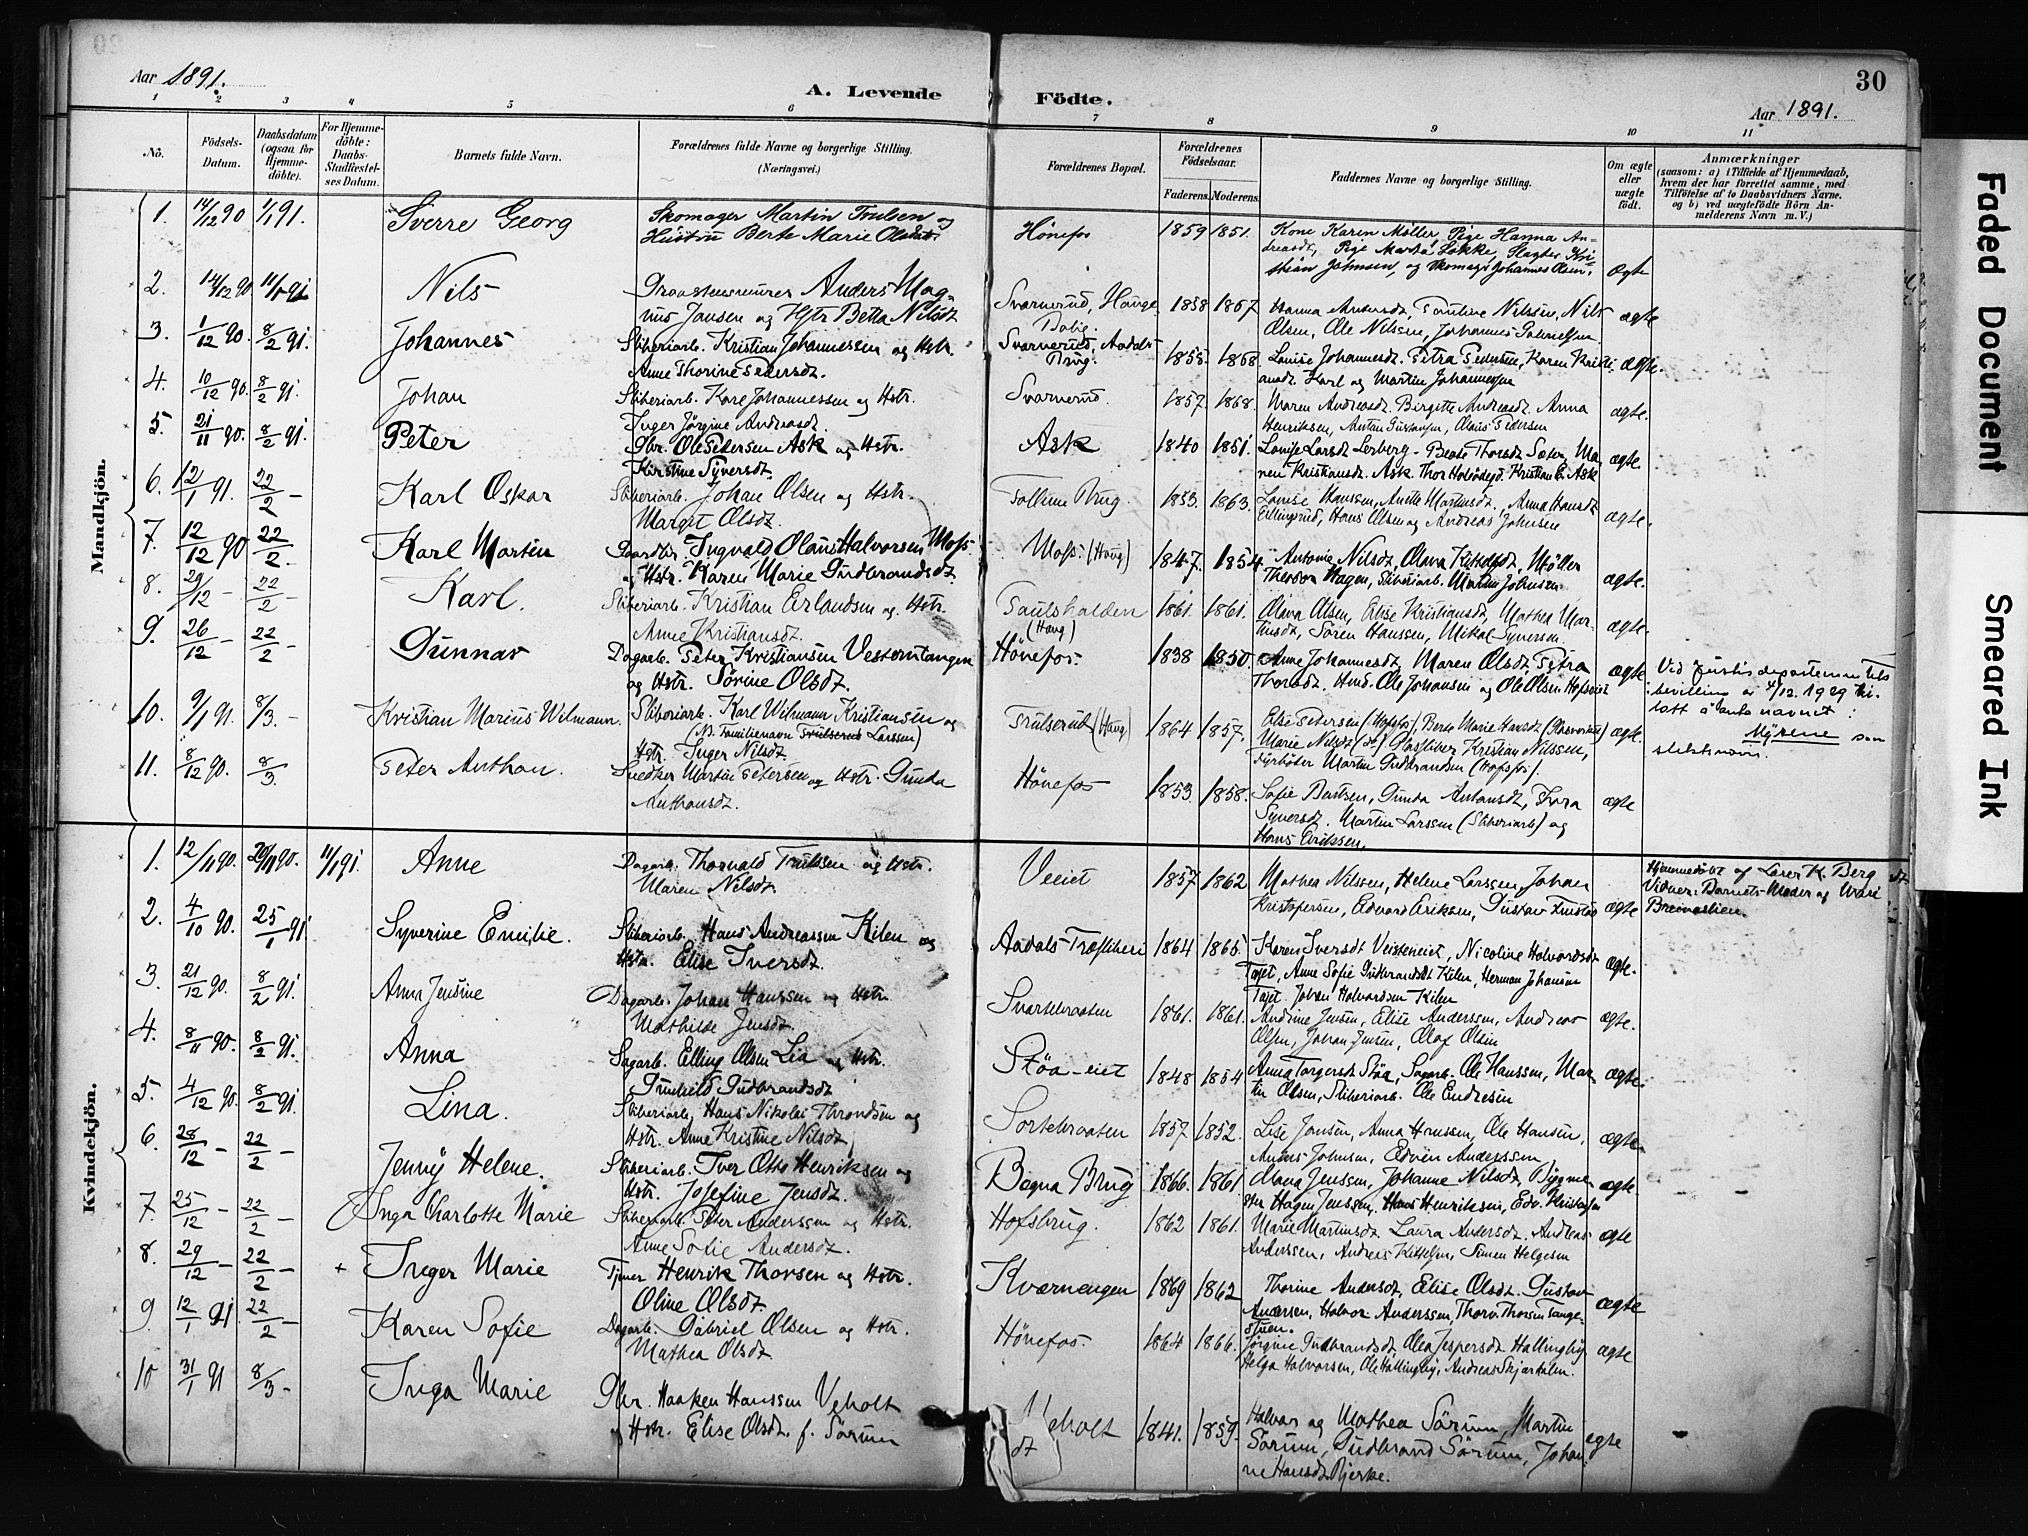 Aar 1891.
A. Levende Födte.
Aar 1891.
30
1 2 3 4 5 6 7 8 9 10 11
No.
Födsels-Datum.
Daabsdatum (ogsaa for Hjemme-döbte).
For Hjemme-döbte: Daabs-Stadfæstel-ses Datum.
Barnets fulde Navn.
Forældrenes fulde Navne og borgerlige Stilling. (Næringsvei.)
Forældrenes Bopæl.
Forældrenes Födselsaar.
Faderens. Moderens.
Faddernes Navne og borgerlige Stilling.
Om ægte eller uægte födt.
Anmærkninger
(saasom: a) i Tilfælde af Hjemmedaab, hvem der har forrettet samme, med Tilföielse af to Daabsvidners Navne. og b) ved uægtefödte Börn An-melderens Navn m. V.)
Mandkjön.
1. 14/12 90 1/1 91. Sverre Georg Skomager Martin Poulsen og Hustru Berte Marie Olsdt. Hönefos 1859 1851. Kone Karen Möller, Pige Hanna Andreasdt, Pige Marta Lökke, Slagter Kristian Johnsen, og Skomagr Johannes Olsen. ægte
2. 14/12 90 11/1 91 Nils Graastensmurer Anders Magnus Jansen og Hstr Betta Nilsdt Svarverud, Hougs Bolig. 1858 1867 Hanna Andersdt, Pauline Nilssen, Nils Olsen, Ole Nilsen, Johannes ægte
3. 1/12 90. 8/2 91. Johannes Sliberiarb. Kristian Johannessen og Hstr. Anne Thorine Pedersdt. Svarverud, Aadals Brug. 1855. 1868 Lovise Johannesdt. Petra Pedersen, Karen Kristiansdt. Karl og Martin Johannesen ægte.
4. 10/12 90. 8/2 91. Johan Sliberiarb. Karl Johannessen og Hstr. Inger Jörgine Andreasdt. Svarverud. 1857. 1868. Maren Andreasdt. Birgitte Andreasdt. Anna Henriksen, Anton Gustavsen, Olaus Pedersen ægte.
5. 21/11 90. 8/2 91. Peter Gbr. Ole Pedersen Ask og Hstr. Kirstine Syversdt. Ask 1840 1851. Lovise Larsdt Lerberg. Beate Thorsdt Sæter, Maren Kristiansdt. Ask Thor Kristian E. Ask ægte.
6. 12/1 91. 22/2 – Karl Oskar Sliberiarb. Johan Olsen og Hstr. Margit Olsdt. Follum Brug. 1853. 1863. Lovise Hanssen, Anette Martinsdt, Anna Hansdt Ellingsrud, Hans Olsen og Andreas Johnsen ægte.
7. 12/12 90 22/2. Karl Martin Gaardbr. Ingvald Olaus Halvorsen Moss og Hstr. Karen Marie Gudbrandsdt Moss (Haug) 1847. 1854 Antonie Nilsdt, Olava Kittelsdt, Möller Theodor Hagen, Sliberiarb. Martin Johnsen ægte.
8. 29/12 – 22/2 – Karl. Sliberiarb. Kristian Erlandsen og Hstr. Anne Kristiansdt. Paulshalden (Haug) 1861. 1861. Olava Olsen, Elise Kristiansdt, Mathea Martinsdt, Sören Hanssen, Mikal Syversen. ægte.
9. 26/12 – 22/2 – Gunnar Dagarb. Peter Kristiansen Vesterntangen og Hstr. Sörine Olsdt. Hönefos. 1838 1850. Anne Johannesdt, Maren Olsdt. Petra Thorsdt. Hmd. Ole Johansen og Ole Olsen Hofsrud ægte
Ved Justisdepartementets bevilling av 4/12.1929 tillatt å anta navnet: Myrene som slektsnavn.
10. 9/1 91. 8/3. – Kristian Marius Wilmann. Sliberiarb. Karl Wilmann Kristiansen og (NB Familienavn Trulserud Larssen) Hstr. Inger Nilsdt. Trulserud (Haug) 1864 1857. Else Petersen (Hofsfos), Berte Marie Havsdt, Marie Nilsdt (do) Glassliber Kristian Nilssen, Fyrböter Martin Gudbrandsen (Hofsfos). ægte.
11. 8/12 90. 8/3. Peter Anthon. Snedker Martin Petersen og Hstr. Gunda Anthonsdt. Hönefos 1853. 1858. Sofie Berntsen, Gunda Antonsdt, Thora Syversdt. Martin Larssen (Sliberiarb) og Hans Erikssen. ægte
Kvindekjön.
1. 12/11 90. 20/11 90. 11/1 91 Anne Dagarb. Thorvald Trulssen og Hstr. Maren Nilsdt. Veeiet 1857 1862 Mathea Nilsen, Helene Larssen, Johan Kristofersen, Edvard Eriksen, Gustav ægte
Hjemmedöbt af Lærer K. Berg Vidner: Barnets Moder og Mari Breinastien.
2. 4/10 90. 25/1 91 Syverine Emilie. Sliberiarb. Hans Andreassen Kilen og Hstr. Elise Iversdt. Aadals Træsliberi 1864 1865. Karen Iversdt Veisteneiet, Nicoline Halvorsdt Tajet, Anne Sofie Gudbrandsdt Kilen, Herman Johansen Tajet. Johan Halvordsen Kilen ægte.
3. 21/12 90. 8/2 91. Anna Jensine Dagarb. Johan Hanssen og Hstr. Mathilde Jensdt. Svartebraaten 1861. 1861. Andrine Jensen, Elise Anderssen, Andreas Olsen, Johan Jensen, Olaf Olsen ægte.
4. 8/11 90. 8/2 91. Anna Sagarb. Elling Olsen Lia og Hstr. Gunhild Gudbrandsdt Stöa-eiet 1848 1854 Anna Torgersdt Stöa, Sagarb. Ole Hanssen, Martin Olsen, Sliberiarb. Ole Endresen ægte.
5. 4/12 90. 8/2 91. Lina. Sliberiarb. Hans Nikolai Throndsen og Hstr. Anne Kristine Nilsdt Sortebraaten 1857. 1852. Lise Jansen, Anna Hanssen, Ole Hansen, Anders Johnsen, Edvin Anderssen ægte.
6. 28/12 – 22/2 – Jenny Helene. Sliberiarb. Iver Otto Henriksen og Hstr. Josefine Jensdt. Begna Brug 1866. 1861 Olava Jenssen, Johanne Nilsdt, Bygmester Hagen Jenssen, Hans Henriksen, Edv. Kristiansen ægte.
7. 25/12 – 22/2 – Inga Charlotte Marie Sliberiarb. Peter Anderssen og Hstr. Anne Sofie Andersdt. Hofsbrug. 1862 1861. Marie Martinsdt. Laura Andersdt. Andreas Anderssen, Andreas Kittelsen, Simen Helgesen ægte
8. 29/12 – 22/2 – + Inger Marie Tjener Henrik Thorsen og Hstr. Oline Olsdt. Kværnengen 1869 1862 Thorine Andersdt, Elise Olsdt. Gustav Andersen, Halvor Anderssen, Thorv. Thorsen Tangestuen. ægte
9. 12/1 91. 22/2 – Karen Sofie Dagarb. Gabriel Olsen og Hstr. Mathea Olsdt. Hönefos. 1864 1866. Jörgine Gudbrandsdt, Olea Jespersdt Hallingby Helga Halvorsen, Ole Hallingby, Andreas Skjærholm. ægte
10 31/1 91 8/3 – Inga Marie Gbr. Haaken Hanssen Veholt og Hstr. Elise Olsdt. f. Sörum Veholt 1841. 1859. Halvor og Mathea Sörum, Martin Sörum, Gudbrand Sörum, Johanne Hansdt Bjerke. ægte
Faded Document
Smeared Ink